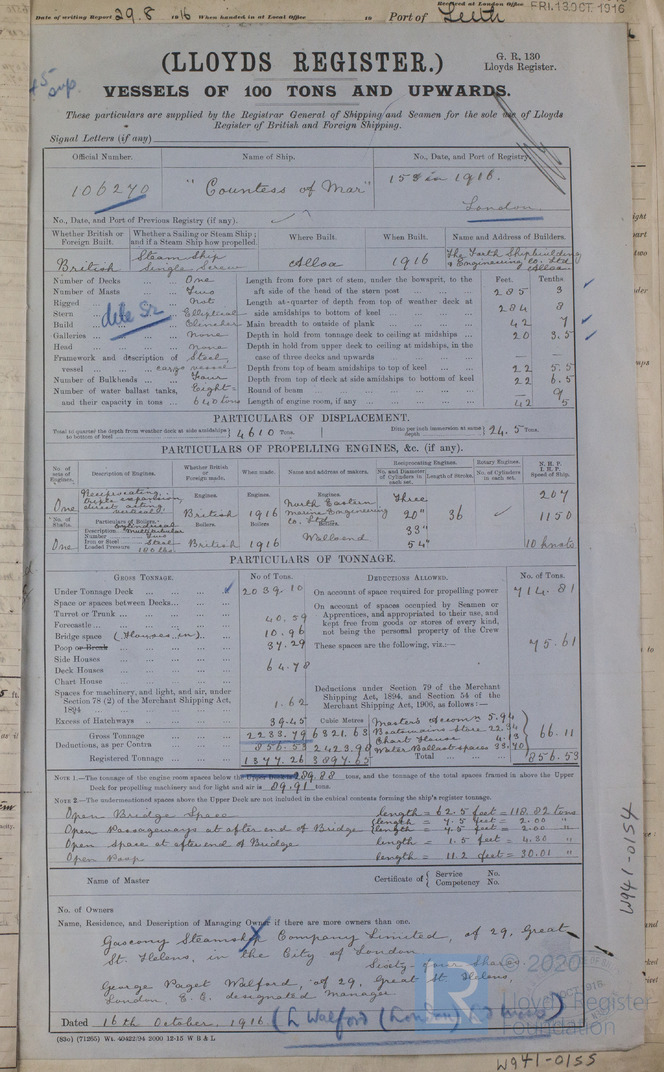 Date of writing Report 29.8 1916 When handed in at Local Office 19 Port of Leith
Received at London Office FRI. 13 OCT. 1916
(LLOYDS REGISTER.)
G. R. 130
Lloyds Register.
VESSELS OF 100 TONS AND UPWARDS.
These particulars are supplied by the Registrar General of Shipping and Seamen for the sole use of Lloyds
Register of British and Foreign Shipping.
Signal Letters (if any)
Official Number. Name of Ship. No., Date, and Port of Registry.
106270 "Countess of Mar" 153 in 1916.
London
No., Date, and Port of Previous Registry (if any).
Whether British or Foreign Built. Whether a Sailing or Steam Ship; and if a Steam Ship how propelled. Where Built. When Built. Name and Address of Builders.
British Steam Ship Single Screw Alloa 1916 The Forth Shipbuilding & Engineering Co. Ltd Alloa
Number of Decks One Length from fore part of stem, under the bowsprit, to the
Feet. Tenths.
Number of Masts Two aft side of the head of the stern post 285 3
Rigged Not Length at quarter of depth from top of weather deck at
Stern Elliptical side amidships to bottom of keel 284 8
Build Clencher Main breadth to outside of plank 42 7
Galleries None Depth in hold from tonnage deck to ceiling at midships 20 3.5
Head None Depth in hold from upper deck to ceiling at midships, in the
Framework and description of Steel case of three decks and upwards
vessel cargo vessel Depth from top of beam amidships to top of keel 22 5.5
Number of Bulkheads Four Depth from top of deck at side amidships to bottom of keel 22 6.5
Number of water ballast tanks, Eight Round of beam 9
and their capacity in tons 640 tons Length of engine room, if any 42 5
PARTICULARS OF DISPLACEMENT.
Total to quarter the depth from weather deck at side amidships to bottom of keel 4610 Tons. Ditto per inch immersion at same depth 24.5 Tons.
PARTICULARS OF PROPELLING ENGINES, &c. (if any).
No. of sets of Engines. Description of Engines. Whether British or Foreign made. When made. Name and address of makers. Reciprocating Engines. Rotary Engines. N. H. P. I. H. P. Speed of Ship.
No. and Diameter of Cylinders in each set. Length of Stroke. No. of Cylinders in each set.
One Reciprocating, triple expansion, direct acting, vertical Engines. British Engines. 1916 Engines. North Eastern Marine Engineering Co. Ltd Three 20" 36 207
No. of Shafts. Particulars of Boilers. Boilers. Boilers. Boilers. 33" 1150
Description Cylindrical Multitubular
Number Two
Iron or Steel Steel
Loaded Pressure 180 lbs
One British 1916 Wallsend 54" 10 knots
PARTICULARS OF TONNAGE.
GROSS TONNAGE. No of Tons. DEDUCTIONS ALLOWED. No. of Tons.
Under Tonnage Deck 2039.10 On account of space required for propelling power 714.81
Space or spaces between Decks
Turret or Trunk 40.59
Forecastle
Bridge space (Houses in) 10.96
Poop or Break 37.29
Side Houses
Deck Houses 64.78
Chart House
On account of spaces occupied by Seamen or
Apprentices, and appropriated to their use, and
kept free from goods or stores of every kind,
not being the personal property of the Crew 75.61
These spaces are the following, viz.:—
Spaces for machinery, and light, and air, under
Section 78 (2) of the Merchant Shipping Act,
1894 1.62
Deductions under Section 79 of the Merchant
Shipping Act, 1894, and Section 54 of the
Merchant Shipping Act, 1906, as follows:—
Excess of Hatchways 39.45 Cubic Metres Master's Accom 5.94
Gross Tonnage 2233.79 6321.63 Boatswains Store 22.34
Deductions, as per Contra 856.53 2423.98 Chart House 4.13
Water Ballast spaces 33.70 66.11
Registered Tonnage 1377.26 3897.65 Total 856.53
NOTE 1.—The tonnage of the engine room spaces below the Upper Deck is 289.88 tons, and the tonnage of the total spaces framed in above the Upper
Deck for propelling machinery and for light and air is 89.91 tons.
NOTE 2.—The undermentioned spaces above the Upper Deck are not included in the cubical contents forming the ship's register tonnage.
Open Bridge Space length = 62.5 feet = 118.82 tons
Open Passageways at after end of Bridge length = 7.5 feet = 2.00 "
length = 7.5 feet = 2.00 "
Open Space at after end of Bridge length = 1.5 feet = 4.30 "
Open Poop length = 11.2 feet = 30.01 "
Name of Master Certificate of Service No. Competency No.
No. of Owners
Name, Residence, and Description of Managing Owner if there are more owners than one.
Gascony Steamship Company Limited, of 29, Great
St. Helens, in the City of London
Sixty-four Shares
George Paget Walford, of 29, Great St. Helens,
London, E.C. designated manager
Dated 16th October, 1916
(83c) (71265) Wt. 40422/94 2000 12-15 W B & L
W941-0154
W941-0155
© 2020
Lloyd's Register
Foundation